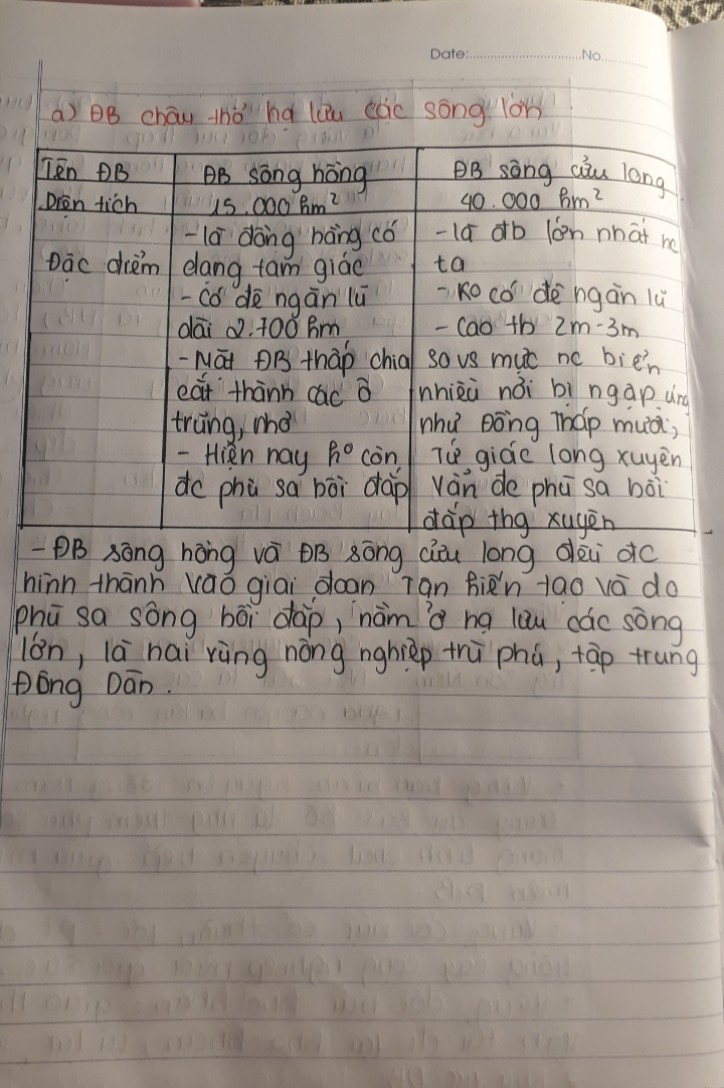 Date:..............................No.............
a) ĐB châu thổ hạ lưu các sông lớn
Tên ĐB
ĐB sông hồng
ĐB sông cửu long
Diện tích
15.000 km²
40.000 km²
Đặc điểm
- là đồng bằng có
dạng tam giác
- Có đê ngăn lũ
dài 2.700 km
- Mặt ĐB thấp chia
cắt thành các ô
trũng, nhỏ
- Hiện nay ko còn
đc phù sa bồi đắp
- là đb lớn nhất nc
ta
- Ko có đê ngăn lũ
- Cao tb 2m-3m
so vs mực nc biển
nhiều nơi bị ngập úng
như Đồng Tháp mười,
Tứ giác long xuyên
Vẫn đc phù sa bồi
đắp thg xuyên
- ĐB sông hồng và ĐB sông cửu long đều đc
hình thành vào giai đoạn Tân kiến tạo và do
phù sa sông bồi đắp, nằm ở hạ lưu các sông
lớn, là hai vùng nông nghiệp trù phú, tập trung
Đông Dân.